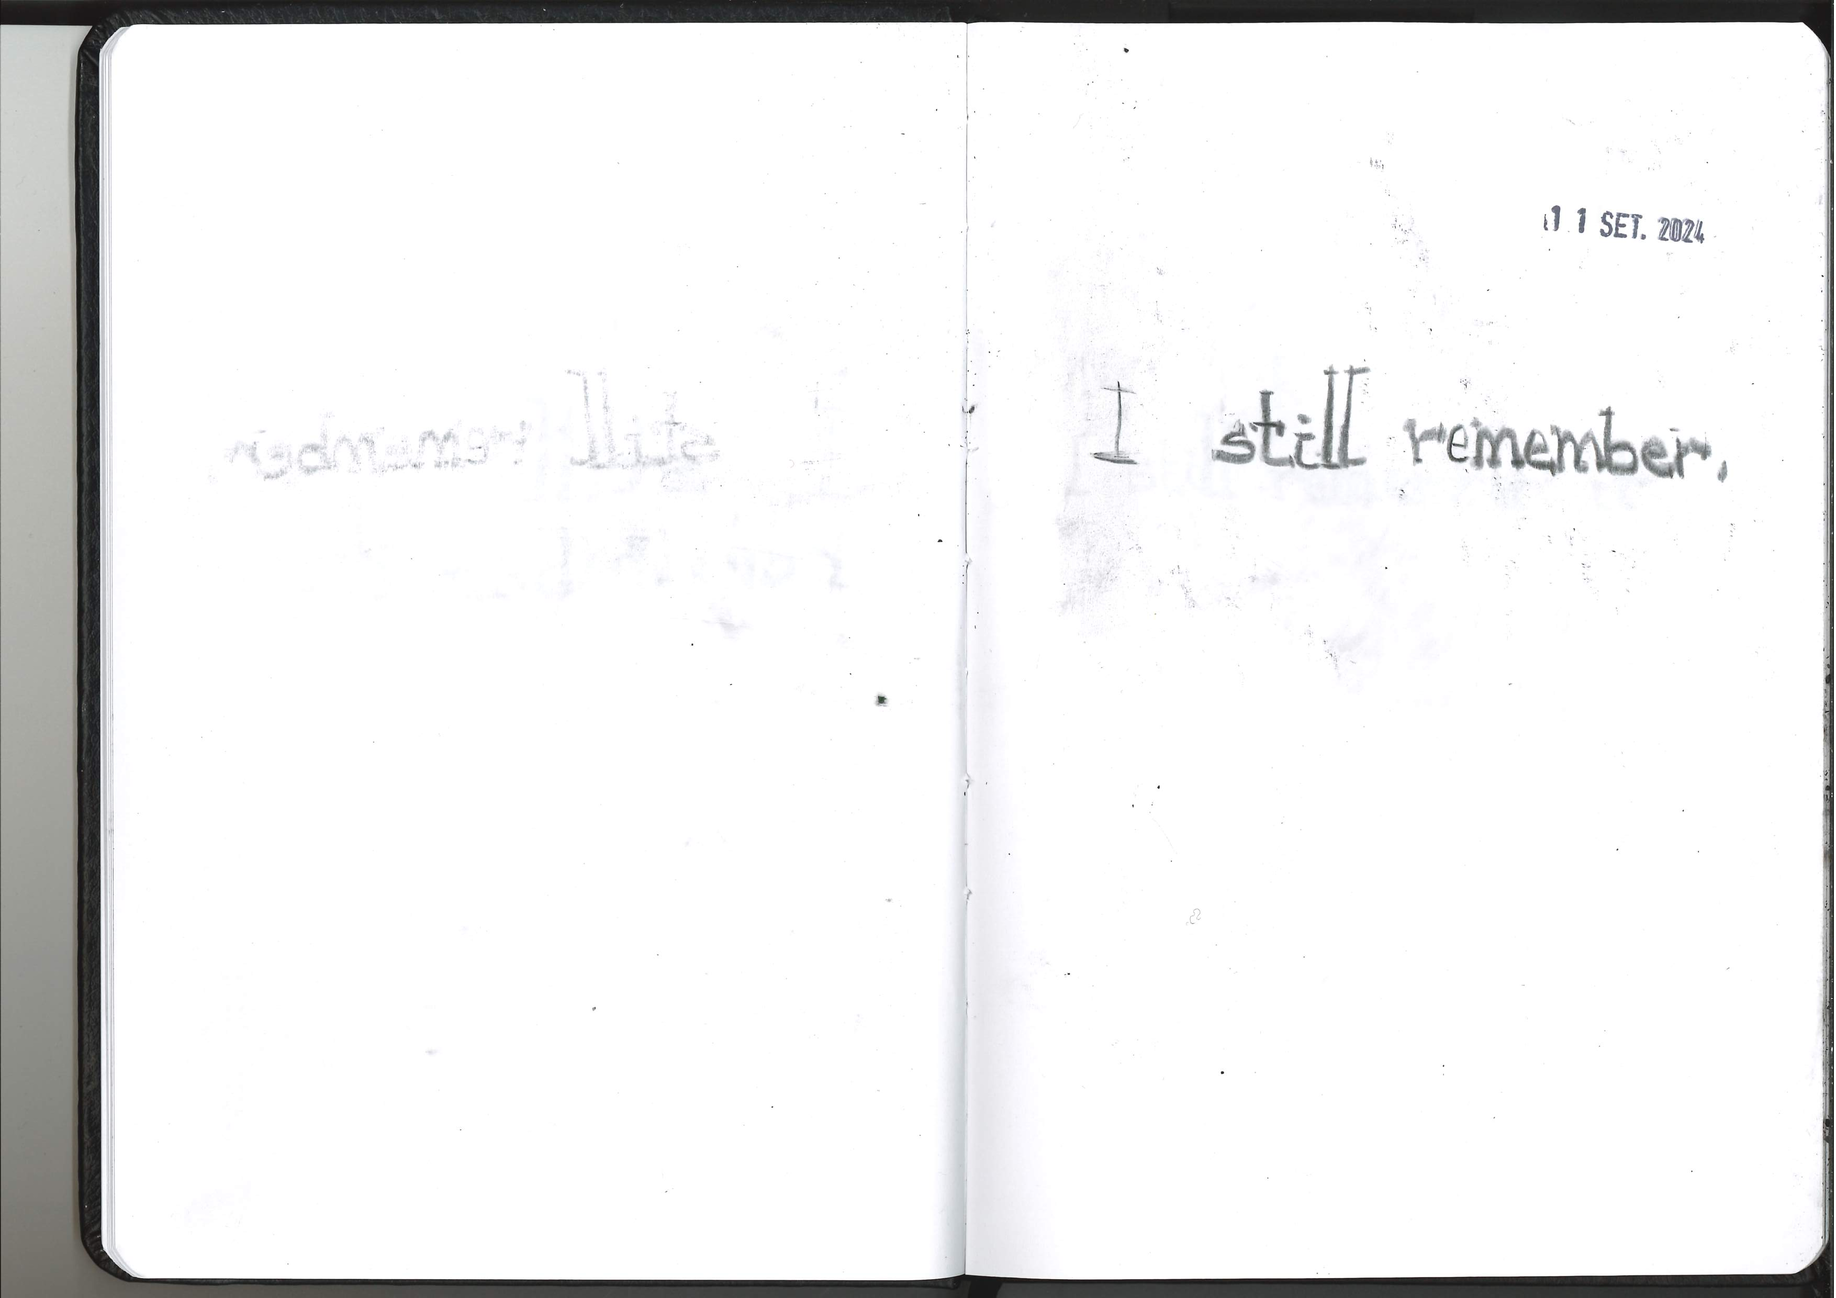 11 SET. 2024
I still remember.